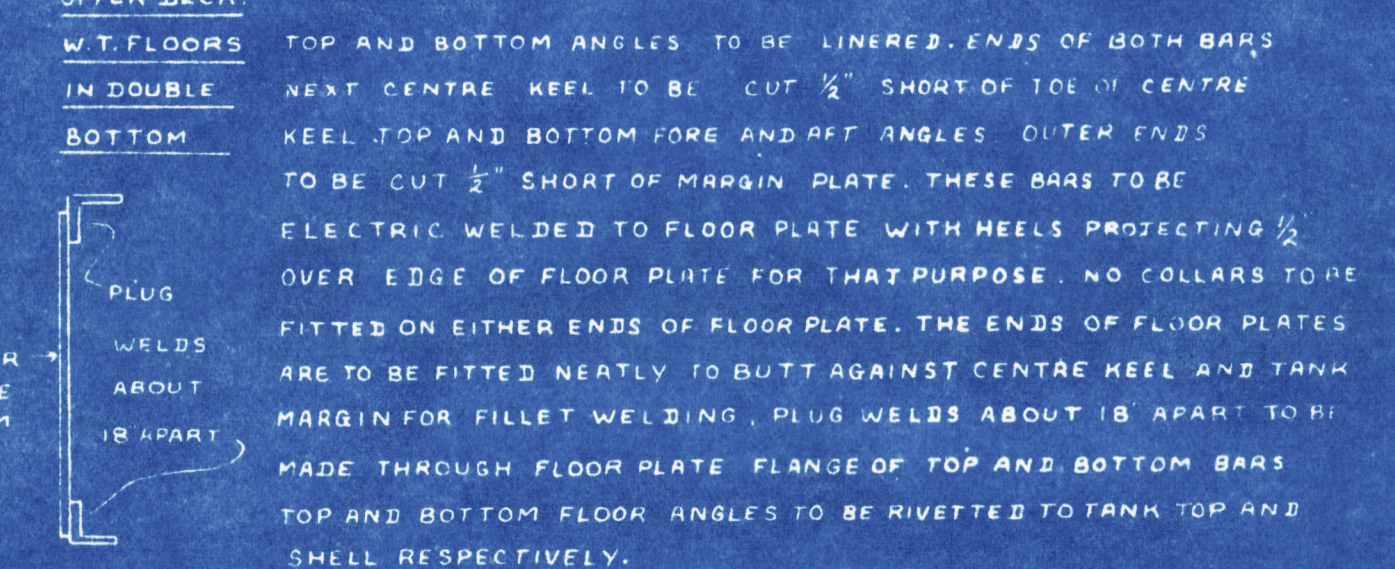 UPPER DECK.
W.T. FLOORS
IN DOUBLE
BOTTOM
TOP AND BOTTOM ANGLES TO BE LINERED. ENDS OF BOTH BARS
NEXT CENTRE KEEL TO BE CUT ½" SHORT OF TOE OF CENTRE
KEEL .TOP AND BOTTOM FORE AND AFT ANGLES OUTER ENDS
TO BE CUT ½" SHORT OF MARGIN PLATE. THESE BARS TO BE
ELECTRIC WELDED TO FLOOR PLATE WITH HEELS PROJECTING ½"
OVER EDGE OF FLOOR PLATE FOR THAT PURPOSE. NO COLLARS TO BE
FITTED ON EITHER ENDS OF FLOOR PLATE. THE ENDS OF FLOOR PLATES
ARE TO BE FITTED NEATLY TO BUTT AGAINST CENTRE KEEL AND TANK
MARGIN FOR FILLET WELDING, PLUG WELDS ABOUT 18" APART TO BE
MADE THROUGH FLOOR PLATE FLANGE OF TOP AND BOTTOM BARS
TOP AND BOTTOM FLOOR ANGLES TO BE RIVETTED TO TANK TOP AND
SHELL RESPECTIVELY.
PLUG
WELDS
ABOUT
18" APART